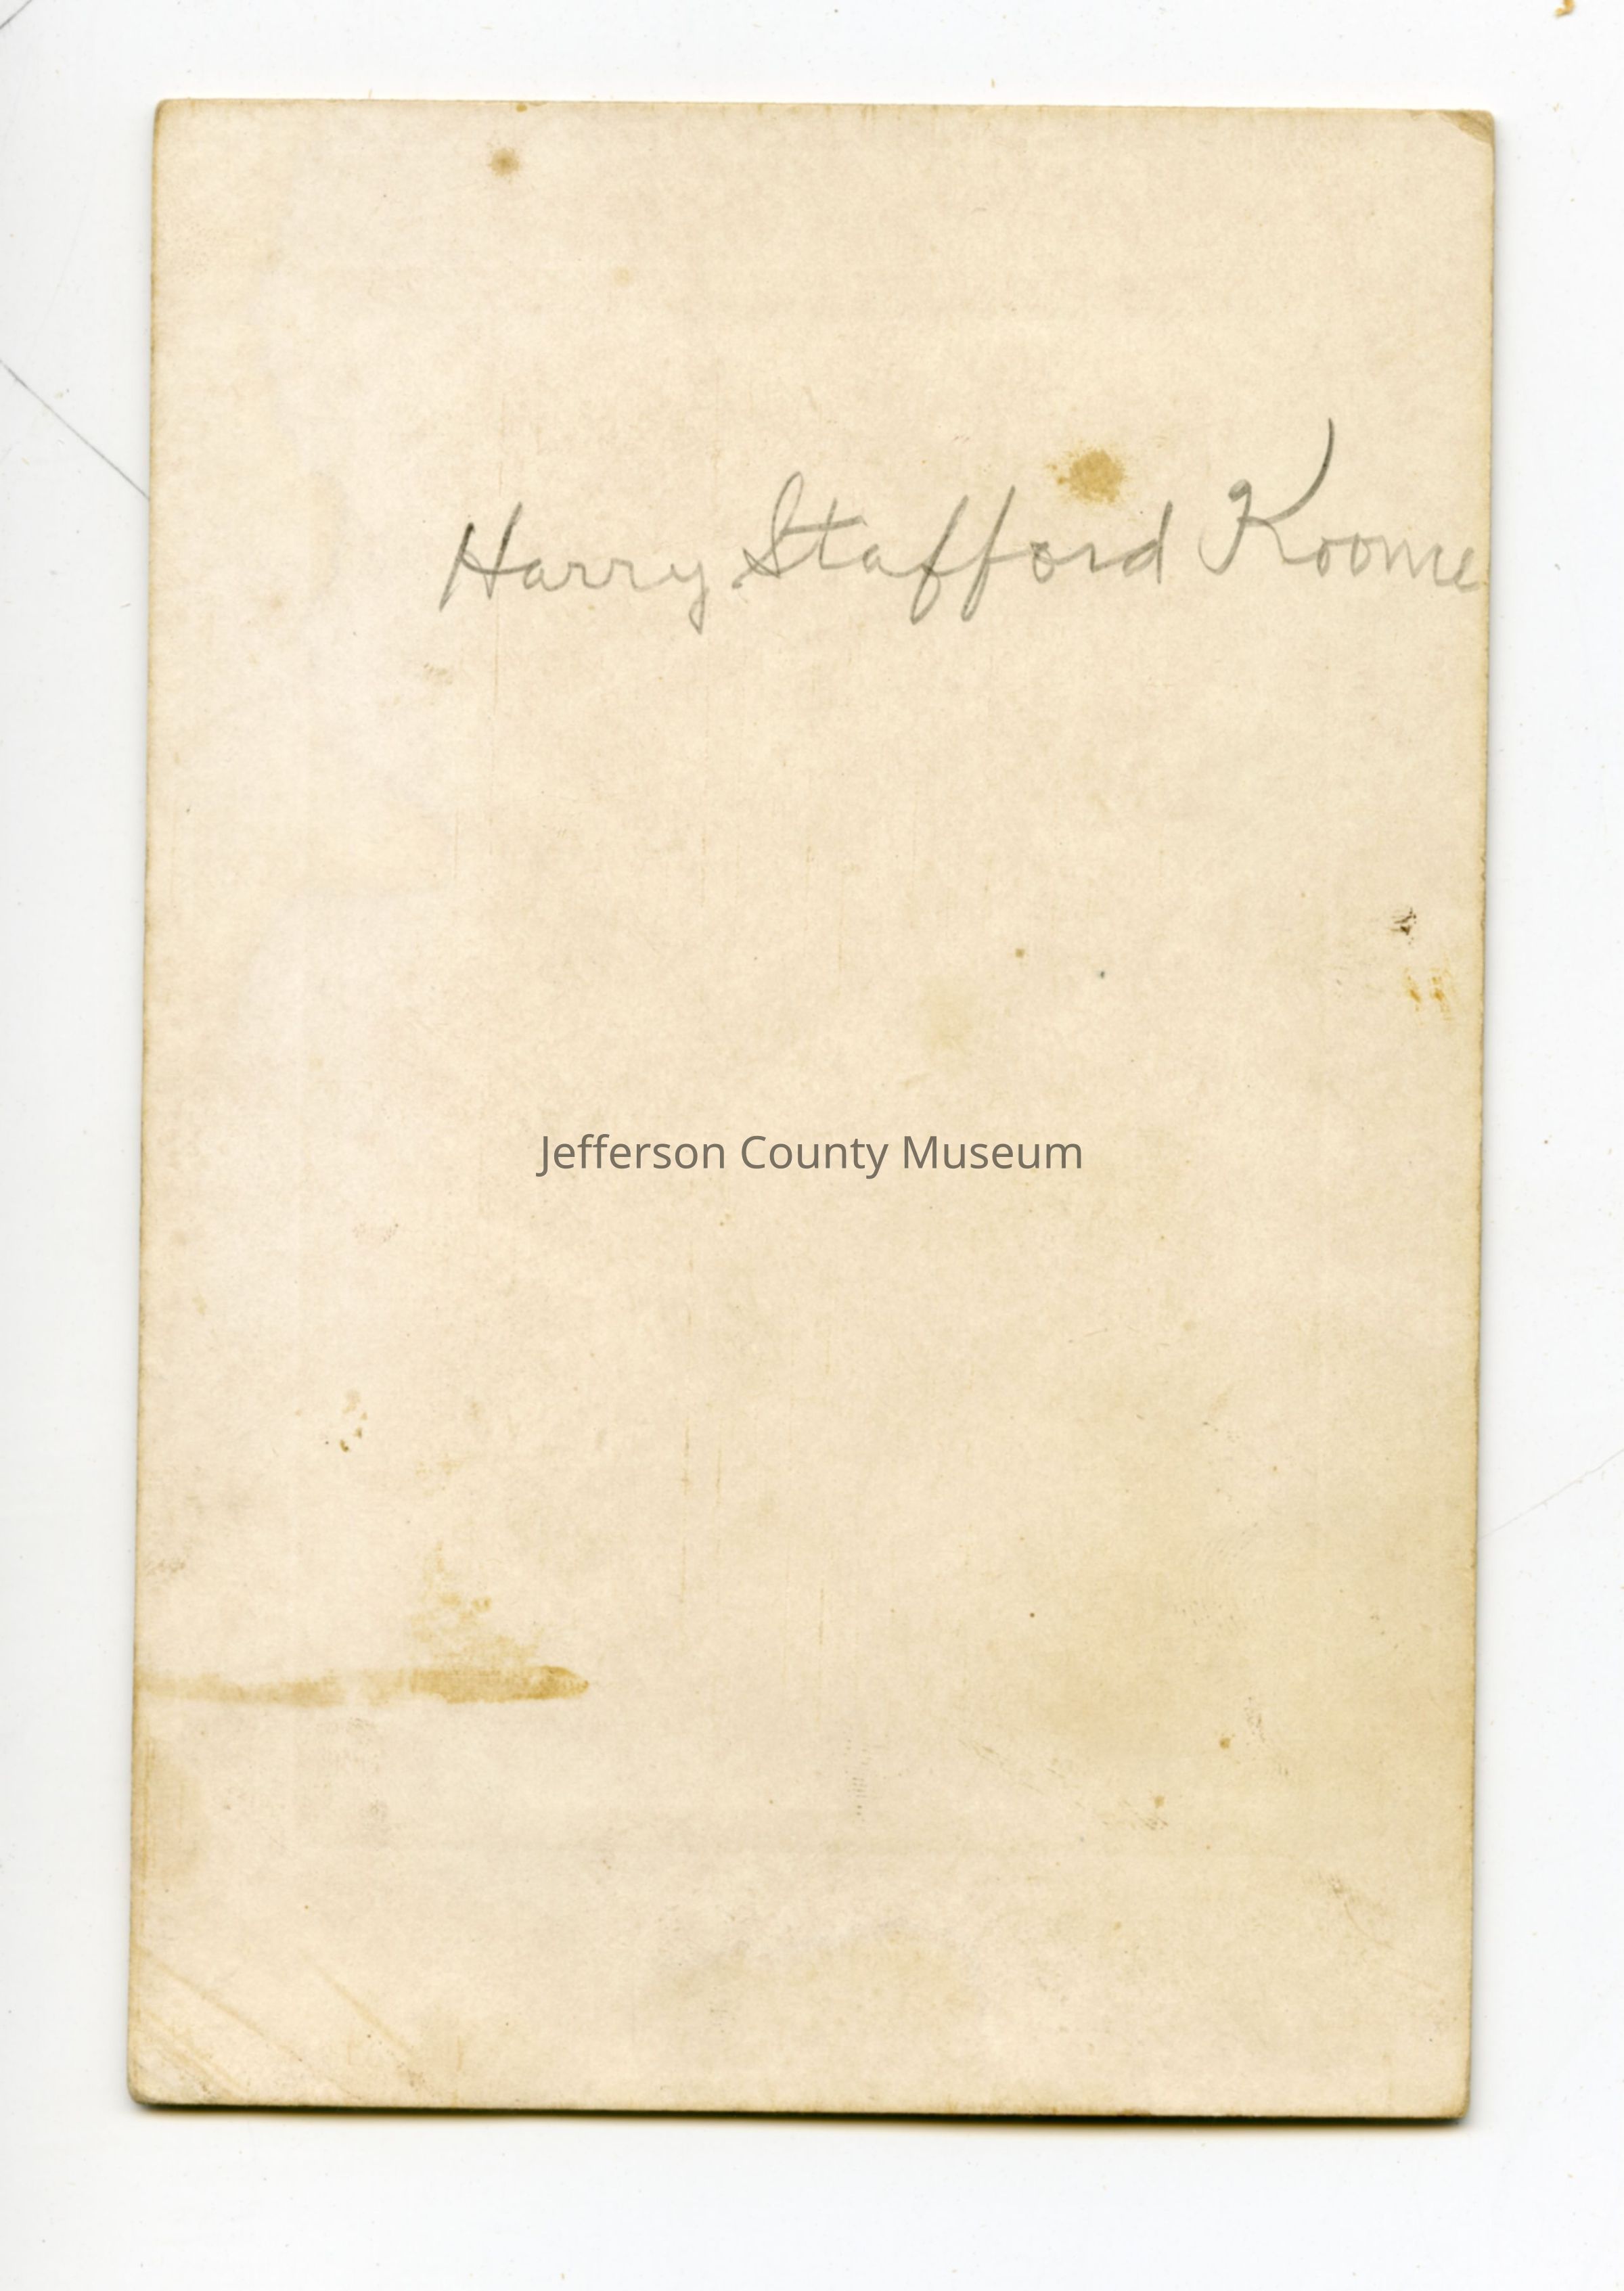 Harry Stafford Koome
Jefferson County Museum